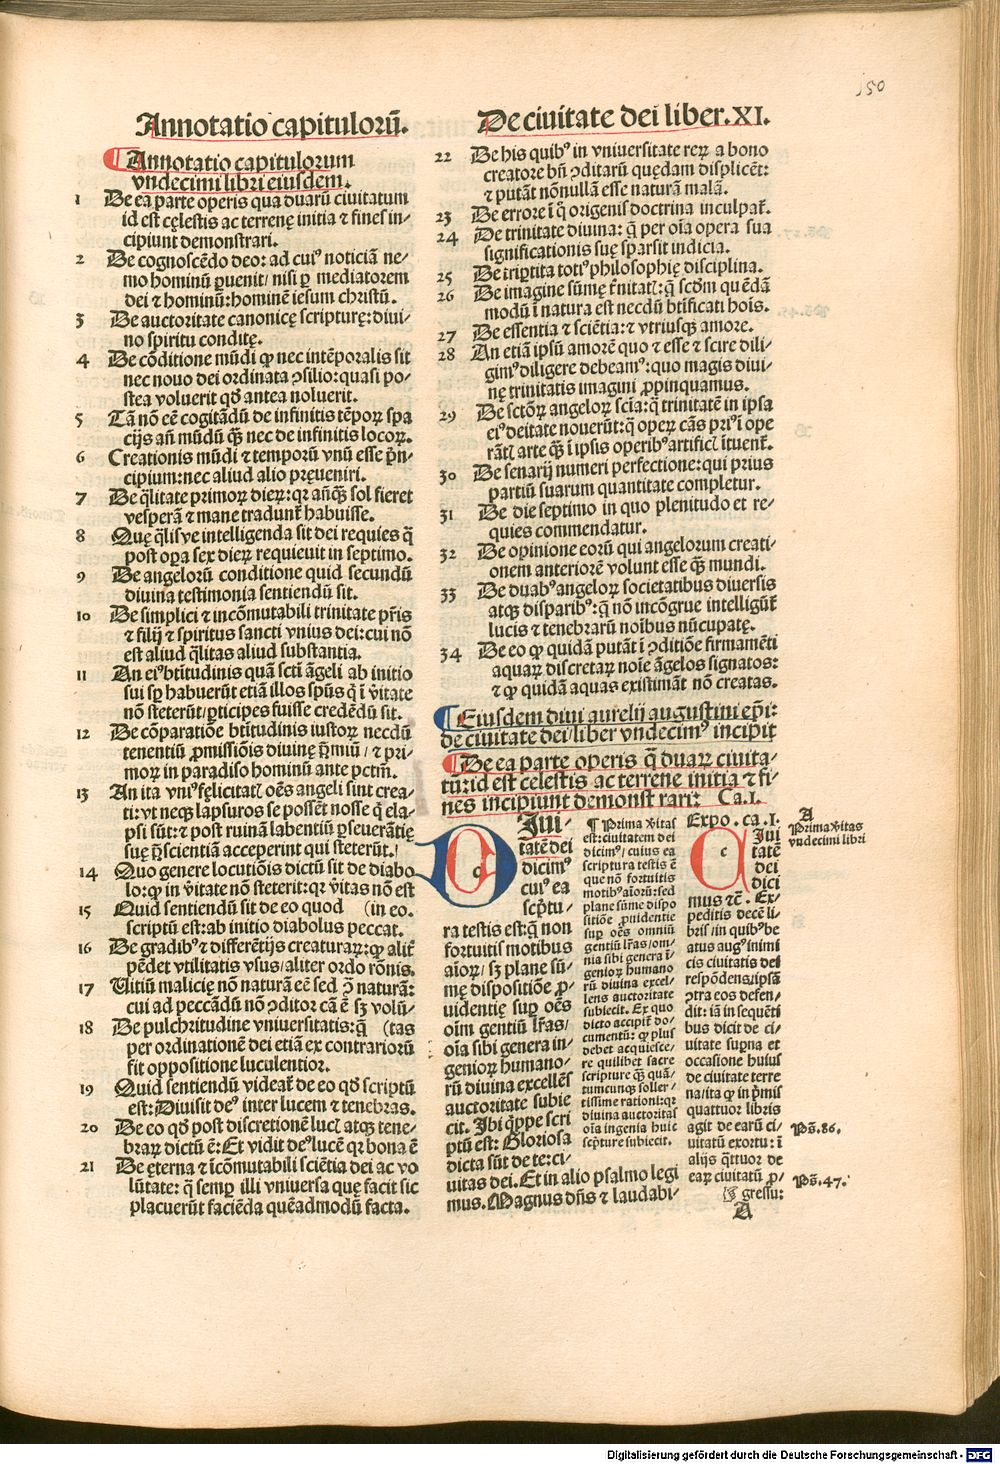 150
Annotatio capitulorū.
De ciuitate dei liber. XI.
Annotatio capitulorum
vndecimi libri eiusdem.
1 De ea parte operis qua duarū ciuitatum
id est cęlestis ac terrenę initia ⁊ fines in⸗
cipiunt demonstrari.
2 De cognoscēdo deo: ad cuiꝰ noticiā ne⸗
mo hominū ꝑuenit/ nisi ꝑ mediatorem
dei ⁊ hominū: hominē iesum christū.
3 De auctoritate canonicę scripturę: diui⸗
no spiritu conditę.
4 De cōditione mūdi ꝙ nec intēporalis sit
nec nouo dei ordinata ꝯsilio: quasi po⸗
stea voluerit qð antea noluerit.
5 Tā nō eē cogitādū de infinitis tēpoꝝ spa
cijs añ mūdū q̄ȝ nec de infinitis locoꝝ.
6 Creationis mūdi ⁊ temporū vnū esse p̄n⸗
cipium: nec aliud alio pręueniri.
7 De q̄litate primoꝝ dieꝝ: qꝛ añq̄ȝ sol fieret
vesperā ⁊ mane tradunt̄ habuisse.
8 Quę q̄lisve intelligenda sit dei requies q̄
post oꝑa sex dieꝝ requieuit in septimo.
9 De angelorū conditione quid secundū
diuina testimonia sentiendū sit.
10 De simplici ⁊ incōmutabili trinitate pr̄is
⁊ filij ⁊ spiritus sancti vnius dei: cui nō
est aliud q̄litas aliud substantia.
11 An eiꝰ btītudinis quā scti āgeli ab initio
sui sꝑ habuerūt etiā illos spūs q̄ ī v̄itate
nō steterūt/ ꝑticipes fuisse credēdū sit.
12 De cōparatiōe btitudinis iustoꝝ necdū
tenentiū ꝓmissiōis diuinę p̄miū/ ⁊ pri⸗
moꝝ in paradiso hominū ante pctm̄.
13 An ita vniꝰ fęlicitatꝭ oēs angeli sint crea⸗
ti: vt neqꝫ lapsuros se possēt nosse q̄ ela⸗
psi sūt: ⁊ post ruinā labentiū ꝑseuerātię
suę p̄scientiā acceperint qui steterūt.
14 Quo genere locutiōis dictū sit de diabo⸗
lo: ꝙ in v̄itate nō steterit: qꝛ v̄itas nō est
15 Quid sentiendū sit de eo quod (in eo.
scriptū est: ab initio diabolus peccat.
16 De gradibꝰ ⁊ differētijs creaturaꝝ: ꝙ alit̄
pēdet vtilitatis vsus/ aliter ordo rōnis.
17 Uitiū malicię nō naturā eē sed ꝯ̄ naturā:
cui ad peccādū nō ꝯditor cā ē sȝ volū⸗
18 De pulchritudine vniuersitatis: q̄ (tas
per ordinationē dei etiā ex contrariorū
fit oppositione luculentior.
19 Quid sentiendū videat̄ de eo qð scriptū
est: Diuisit deꝰ inter lucem ⁊ tenebras.
20 De eo qð post discretionē lucꝭ atqꝫ tene⸗
braꝝ dictū ē: Et vidit deꝰ lucē qꝛ bona ē
21 De ęterna ⁊ īcōmutabili sciētia dei ac vo
lūtate: q̄ semꝑ illi vniuersa quę facit sic
placuerūt faciēda quēadmodū facta.
22 De his quibꝰ in vniuersitate reꝝ a bono
creatore bñ ꝯditarū quędam displicēt:
⁊ putāt nōnullā esse naturā malā.
23 De errore ī q̊ origenis doctrina inculpat̄.
24 De trinitate diuina: q̄ per oīa opera sua
significationis suę sparsit indicia.
25 De tripertita totiꝰ philosophię disciplina.
26 De imagine sūmę t̄nitatꝭ: q̄ scdm̄ quēdā
modū ī natura est necdū btificati hoīs.
27 De essentia ⁊ sciētia: ⁊ vtriusqꝫ amore.
28 An etiā ipsū amorē quo ⁊ esse ⁊ scire dili⸗
gimꝰ diligere debeamꝰ: quo magis diui⸗
nę trinitatis imagini ꝓpinquamus.
29 De sctōꝝ angeloꝝ scīa: q̄ trinitatē in ipsa
eiꝰ deitate nouerūt: q̄ oꝑeꝝ cās priꝰ ī ope
rātꝭ arte q̄ȝ ī ipsis operibꝰ artificꝭ ītuent̄.
30 De senarij numeri perfectione: qui prius
partiū suarum quantitate completur.
31 De die septimo in quo plenitudo et re⸗
quies commendatur.
32 De opinione eorū qui angelorum creati⸗
onem anteriorē volunt esse q̄ȝ mundi.
33 De duabꝰ angeloꝝ societatibus diuersis
atqꝫ disparibꝰ: q̄ nō incōgrue intelligūt̄
lucis ⁊ tenebrarū noībus nūcupatę.
34 De eo ꝙ quidā putāt ī ꝯditiōe firmamēti
aquaꝝ discretaꝝ noīe āgelos signatos:
⁊ ꝙ quidā aquas existimāt nō creatas.
Eiusdem diui aurelij augustini epī:
de ciuitate dei/ liber vndecimꝰ incipit
De ea parte operis q̄ duaꝝ ciuita⸗
tu: id est celestis ac terrene initia ⁊ fi⸗
nes incipiunt demonstrari: Ca. I.
CIui⸗
tatē dei
dicimꝰ
cuiꝰ ea
scp̄tu⸗
ra testis est: q̄ non
fortuitis motibus
aīoꝝ/ sȝ plane sū⸗
mę dispositiōe ꝓ⸗
uidentię suꝑ oēs
oīm gentiū lr̄as/
oīa sibi genera in⸗
genioꝝ humano⸗
rū diuina excellēs
auctoritate subie
cit. Ibi q̄ppe scri
ptū est: Gloriosa
dicta sūt de te: ci⸗
uitas dei. Et in alio psalmo legi
mus. Magnus dn̄s ⁊ laudabi⸗
¶ Prima v̄itas
est: ciuitatem dei
dicimꝰ/ cuius ea
scriptura testis ē
que nō fortuitis
motibꝰ aīorū: sed
plane sūme dispo
sitiōe ꝓuidentie
suꝑ oēs omniū
gentiū lr̄as/ om⸗
nia sibi genera ī⸗
genioꝝ humano
rū diuina excel⸗
lens auctoritate
subiecit. Ex quo
dicto accipit̄ do⸗
cumentū: ꝙ plus
debet acquiesce⸗
re quilibet sacre
scripture q̄ȝ quā⸗
tumcunqꝫ soller⸗
tissime rationi: qꝛ
diuina auctoritas
oīa ingenia huic
scp̄ture subiecit.
Expo. ca. I.
CIui
tatē
dei
dici
mus ⁊c̄. Ex⸗
peditis decē li⸗
bris/ in quibꝰ be
atus augꝰ inimi
cis ciuitatis dei
respōdens/ ipsā
ꝯtra eos defen⸗
dit: iā in sequēti
bus dicit de ci⸗
uitate supna et
occasione huius
de ciuitate terre
na/ ita ꝙ in p̄mis
quattuor libris
agit de earū ci⸗
uitatū exortu: ī
alijs q̄ttuor de
eaꝝ ciuitatū ꝓ⸗
gressu:
A
A
Prima v̄itas
vndecimi libri
Ps̄. 86.
Ps̄. 47.
Digitalisierung gefördert durch die Deutsche Forschungsgemeinschaft - DFG